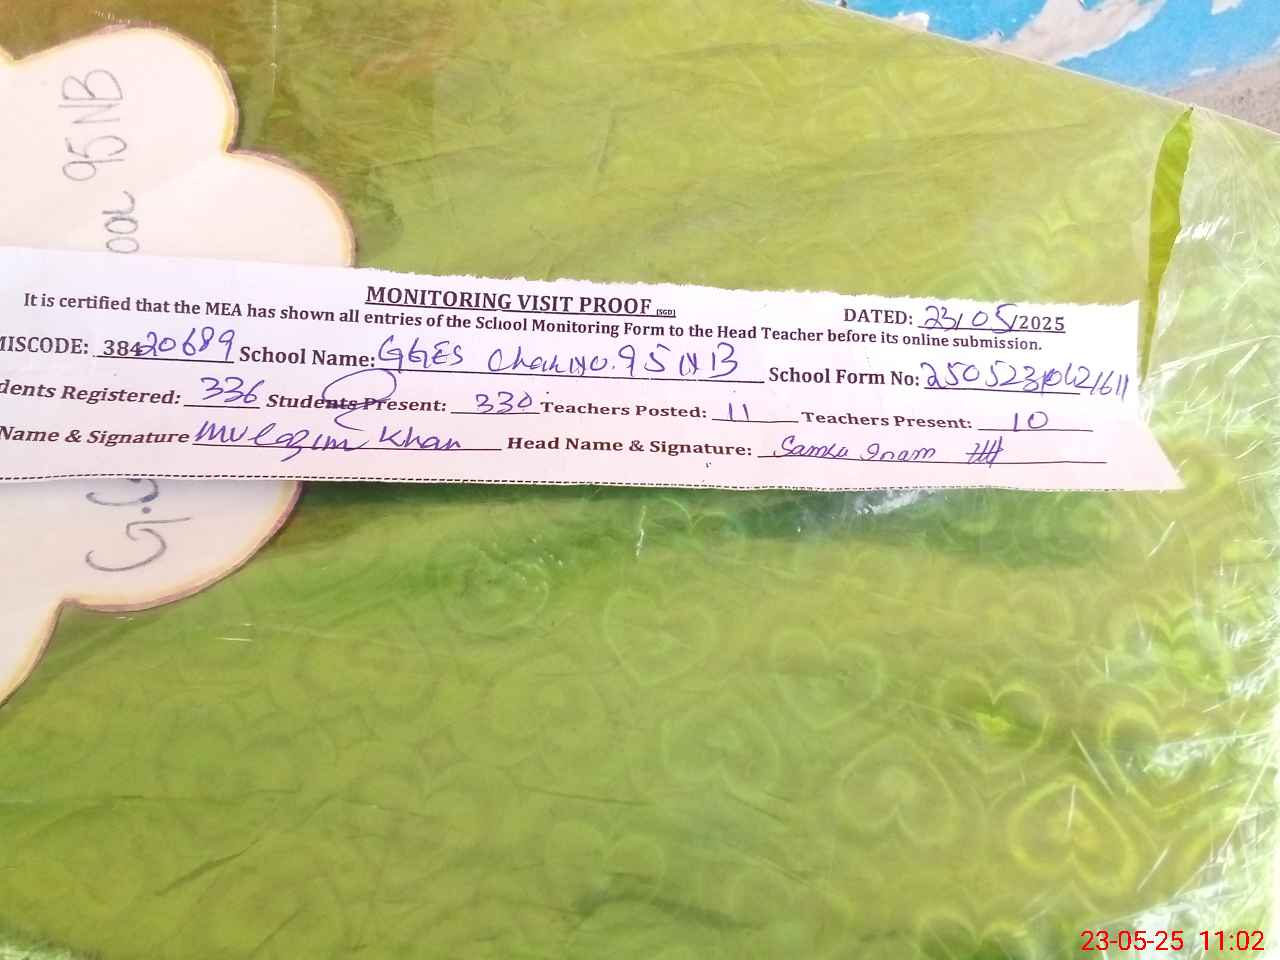 95 NB
G.G
MONITORING VISIT PROOF (SGD)
DATED: 23/05/2025
It is certified that the MEA has shown all entries of the School Monitoring Form to the Head Teacher before its online submission.
MISCODE: 38420689 School Name: GGES Chak No. 95 NB School Form No:
dents Registered: 336 Students Present: 330 Teachers Posted: 11 Teachers Present: 10
Name & Signature Mulazim Khan Head Name & Signature: Inam
23-05-25 11:02